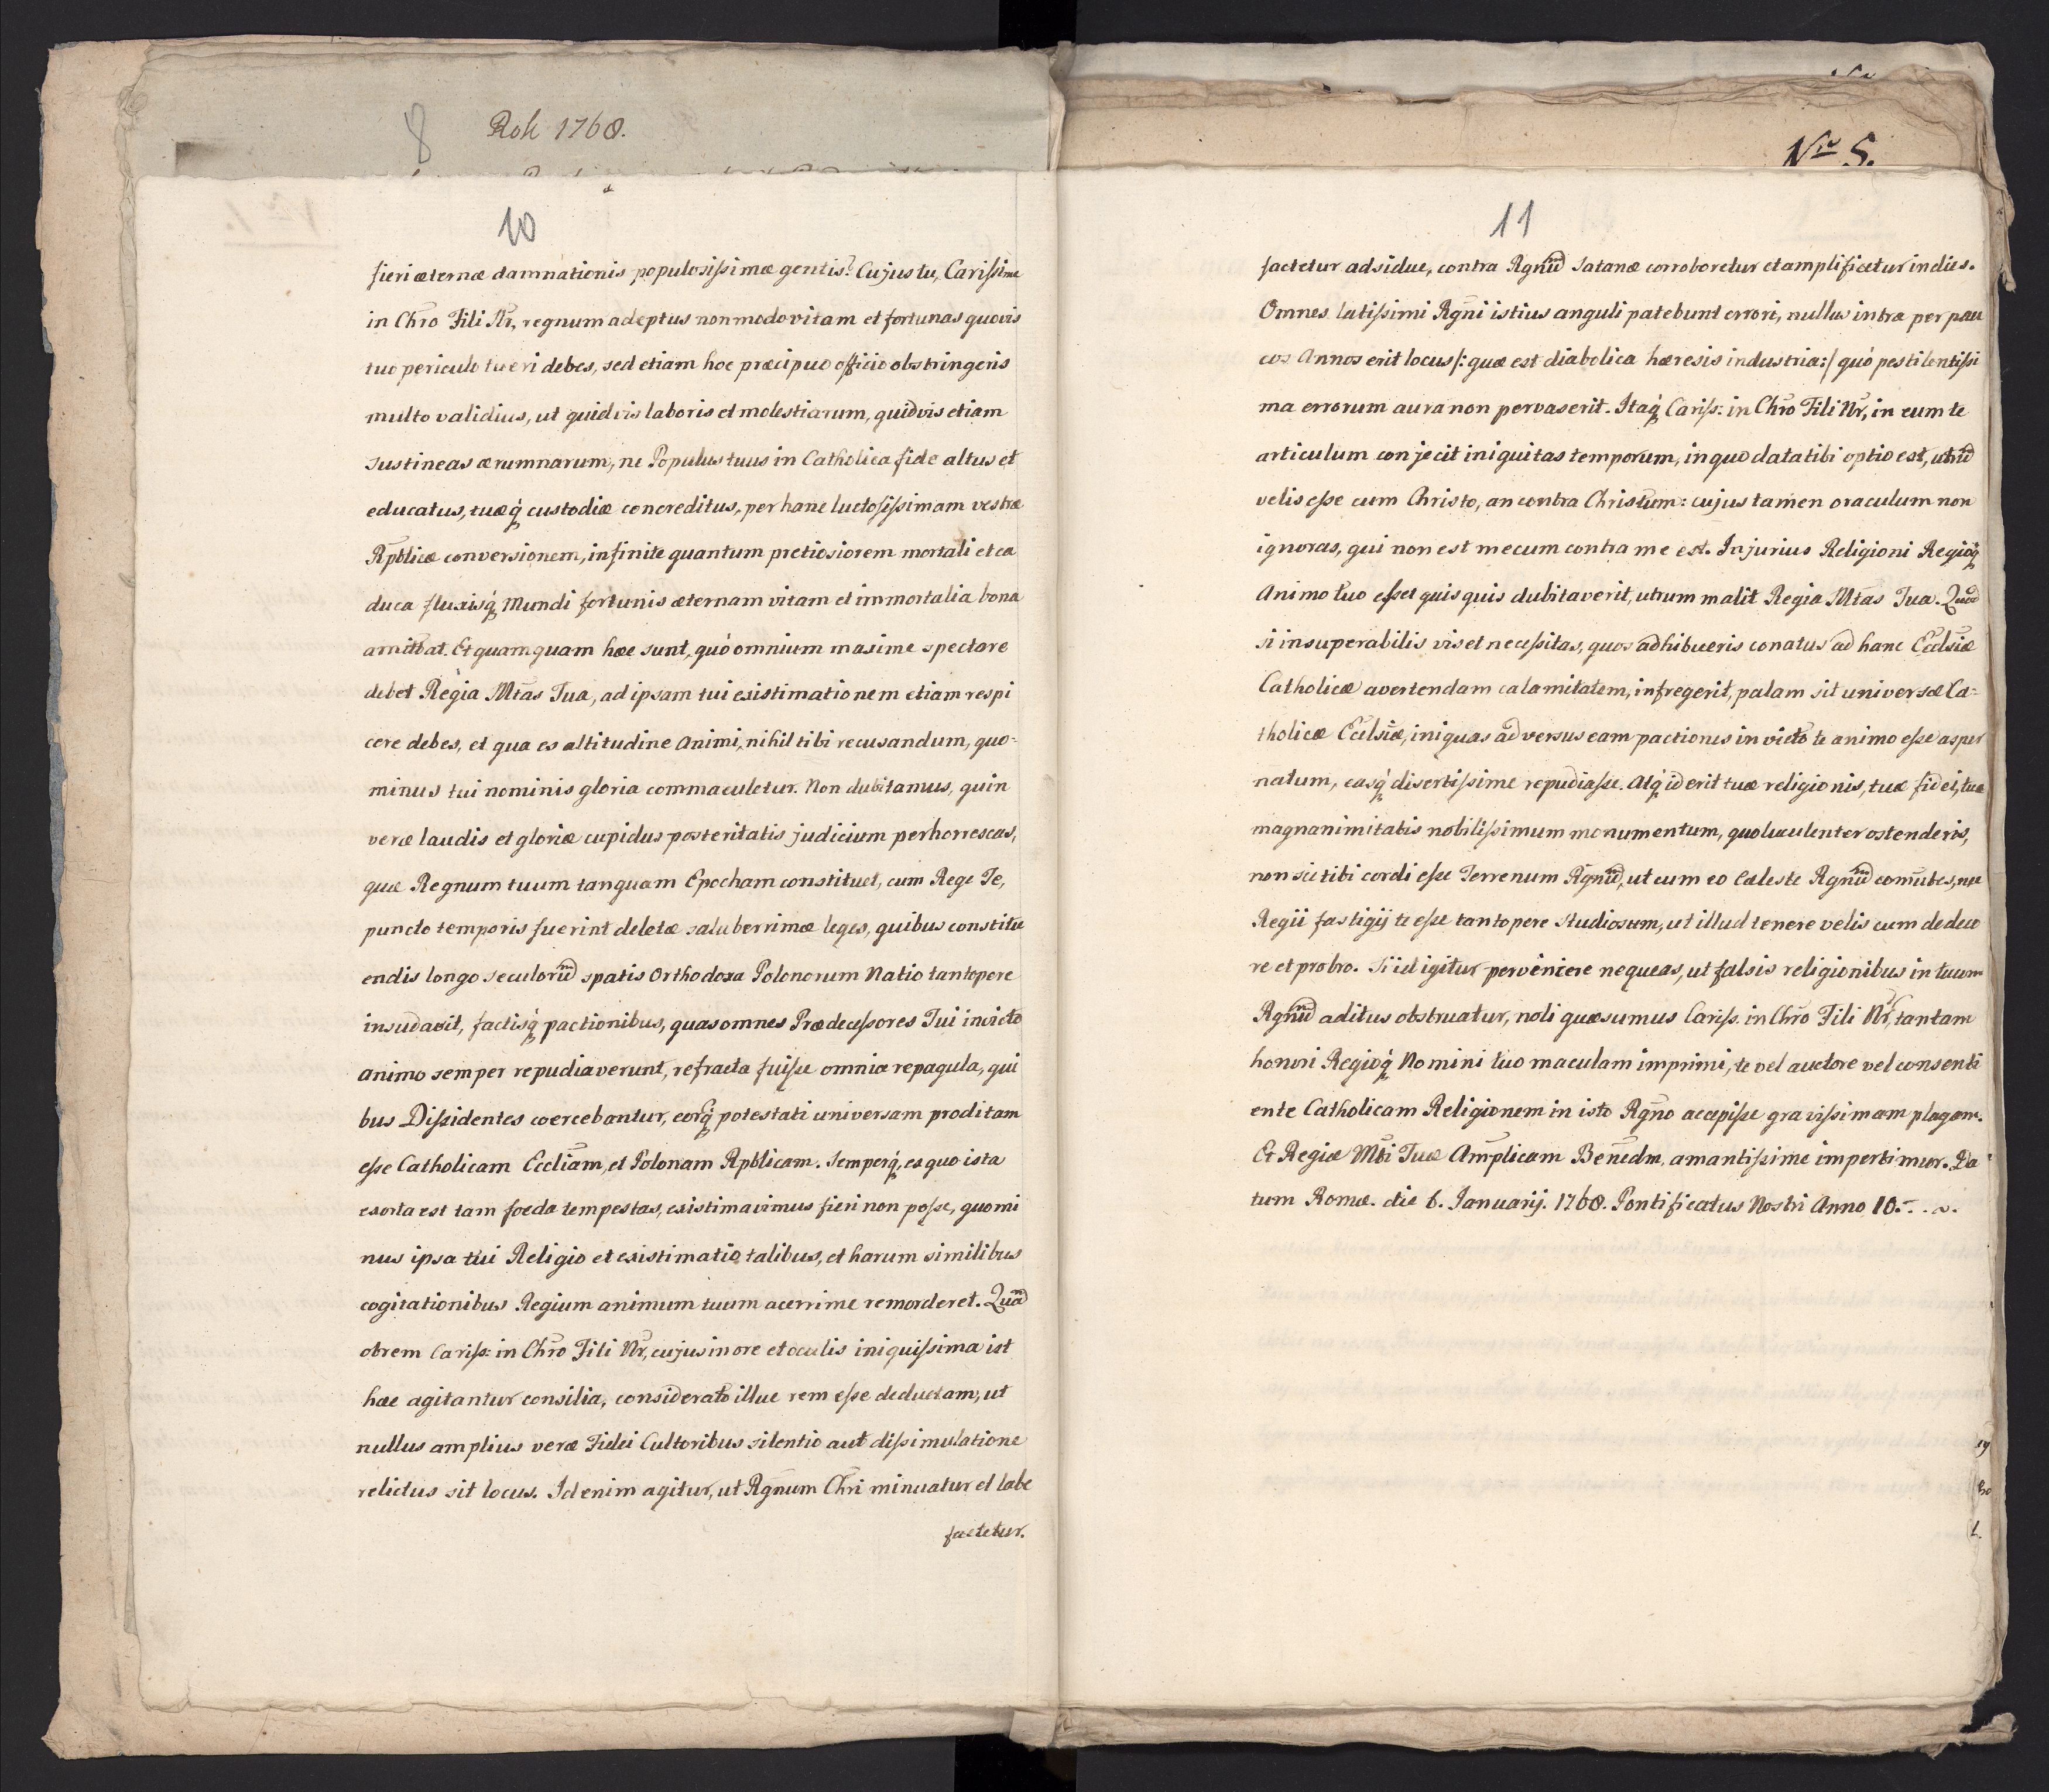 8 Rok 1768.
10
fieri æternæ damnationis populosissimæ gentis? Cujus tu, Carissime
in Chro Fili Nr, regnum adeptus non modo vitam et fortunas quovis
tuo periculo tueri debes, sed etiam hoc præcipuo officio obstringeris
multo validius, ut quidvis laboris et molestiarum, quidvis etiam
sustineas ærumnarum, ne Populus tuus in Catholica fide altus et
educatus, tuæq́ custodiæ concreditus, per hanc luctosissimam vestræ
Rpblicæ conversionem, infinite quantum pretiosiorem mortali et ca
duca fluxisq́ Mundi fortunis æternam vitam et immortalia bona
amittat. Et quamquam hæc sunt, quò omnium maxime spectare
debet Regia Mtas Tua, ad ipsam tui existimationem etiam respi
cere debes, et qua es altitudine Animi, nihil tibi recusandum, quo=
minus tui nominis gloria commaculetur. Non dubitamus, quin
veræ laudis et gloriæ cupidus posteritatis judicium perhorrescas,
quæ Regnum tuum tanquam Epocham constituet, cum Rege Te,
puncto temporis fuerint deletæ saluberrimæ leges, quibus constitu
endis longo seculorum̃ spatis Orthodoxa Polonorum Natio tantopere
insudavit, factisq́ pactionibus, quas omnes Prædecessores Tui invicto
animo semper repudiaverunt, refracta fuisse omnia repagula, qui
bus Dissidentes coercebantur, eorq́ potestati universam proditam
esse Catholicam Eccliam, et Polonam Rpblicam. Semperq́, ex quo ista
exorta est tam foeda tempestas, existimavimus fieri non posse, quomi
nus ipsa tui Religio et existimatio talibus, et harum similibus
cogitationibus Regium animum tuum acerrime remorderet. Quam̃
obrem Cariss: in Chro Fili Nr, cujus in ore et oculis iniquissima ist
hæc agitantur consilia, considerato illuc rem esse deductam, ut
nullus amplius veræ Fidei Cultoribus silentio aut dissimulatione
relictus sit locus. Id enim agitur, ut Rgnum Chri minuatur et labe
factetur.
Nro 5.
11
factetur adsidue, contra Rgnum̃ Satanæ corroboretur et amplificetur in dies.
Omnes latissimi Rgni istius anguli patebunt errori, nullus intra per pau
cos Annos erit locus /: quæ est diabolica hæresis industria:/ quò pestilentissi
ma errorum aura non pervaserit. Itaq́ Cariss: in Chro Fili Nr, in eum te
articulum conjecit iniquitas temporum, in quo data tibi optio est, utrum̃
velis esse cum Christo, an contra Christum: cujus tamen oraculum non
ignoras, qui non est mecum contra me est. Injurius Religioni Regioq́
Animo tuo esset quisquis dubitaverit, utrum malit Regia Mtas Tua. Quod
si insuperabilis vis et necessitas, quos adhibueris conatus ad hanc Ecclsiæ
Catholicæ avertendam calamitatem, infregerit, palam sit universæ Ca=
tholicæ Ecclsiæ, iniquas adversus eam pactiones invicto te animo esse asper
natum, easq́ disertissime repudiasse. Atq́ id erit tuæ religionis, tuæ fidei, tuæ
magnanimitatis nobilissimum monumentum, quo luculenter ostenderis,
non sic tibi cordi esse Terrenum Rgnum̃, ut cum eo Cæleste Rgnum̃ com̃utes, nec
Regii fastigij te esse tantopere studiosum, ut illud tenere velis cum dedeco
re et probro. Si id igitur pervincere nequeas, ut falsis religionibus in tuum
Rgnum̃ aditus obstruatur, noli quæsumus Cariss. in Chro Fili Nr, tantam
honori Regioq́ Nomini tuo maculam imprimi, te vel auctore vel consenti
ente Catholicam Religionem in isto Rgno accepisse gravissimam plagam.
Et Regiæ Mti Tuæ Amplicam Benedm, amantissime impertimur. Da
tum Romæ. die 6. Januarij. 1768. Pontificatus Nostri Anno 10.